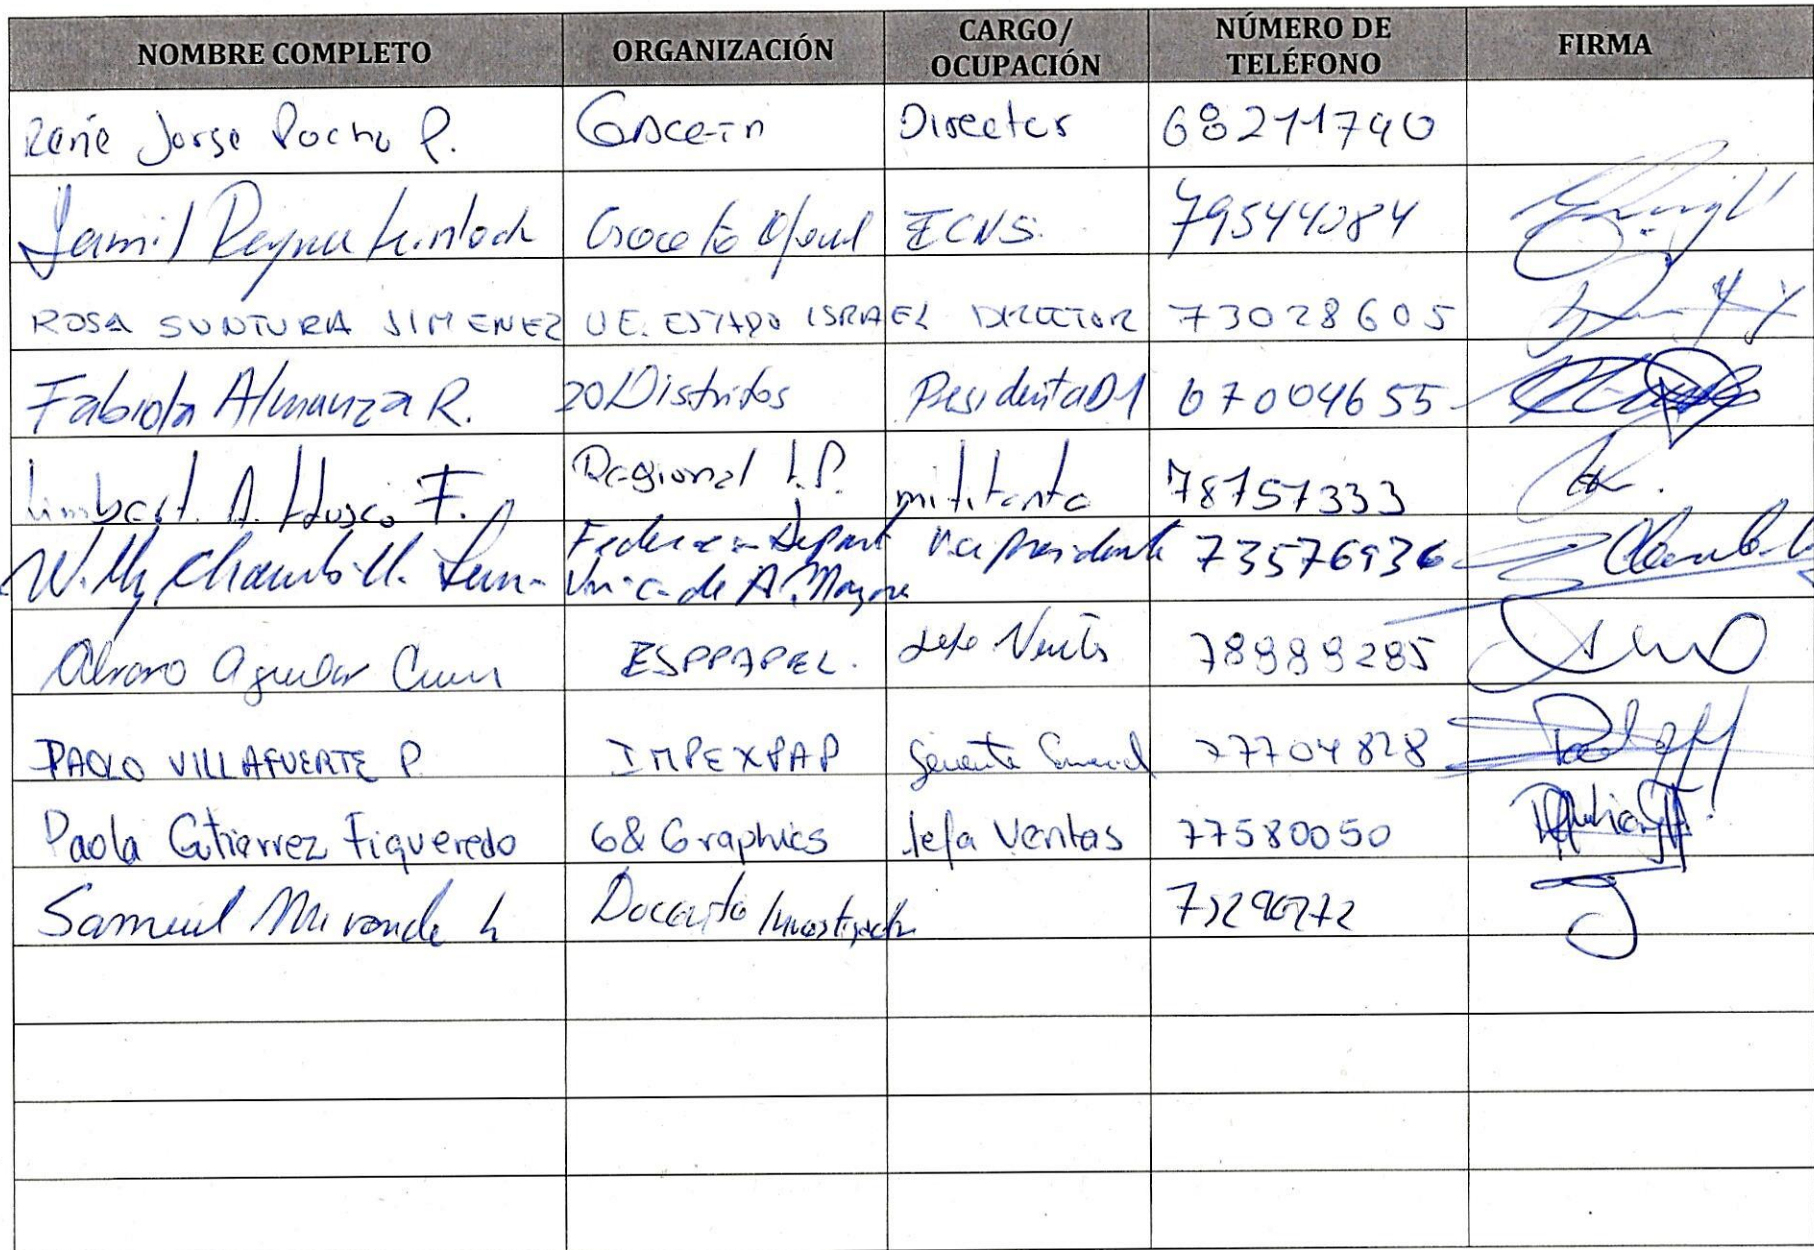 NOMBRE COMPLETO ORGANIZACIÓN CARGO/ OCUPACIÓN NÚMERO DE TELÉFONO FIRMA
René Jorge Pocho P. Director 68211740
Jamil Reyna 79544084
ROSA SUNTURA JIMENEZ U.E. ESTADO ISRAEL DIRECTOR 73028605
Fabiola Almanza R. 20 Distritos Presidenta D1 67004655
A. F. Regional L.P. militante 78757333
Willy Federacion Depart Vicepresidente 73576936
Unica de A. Mayore
Alvaro Aguilar ESPPAPEL. Jefe Vents 78989285
PAOLO VILLAFUERTE P. IMPEXPAP Gerente General 77704828
Paola Gutierrez Figueredo 68 Graphics Jefa Ventas 77580050
Samuel Miranda Docente Investigador